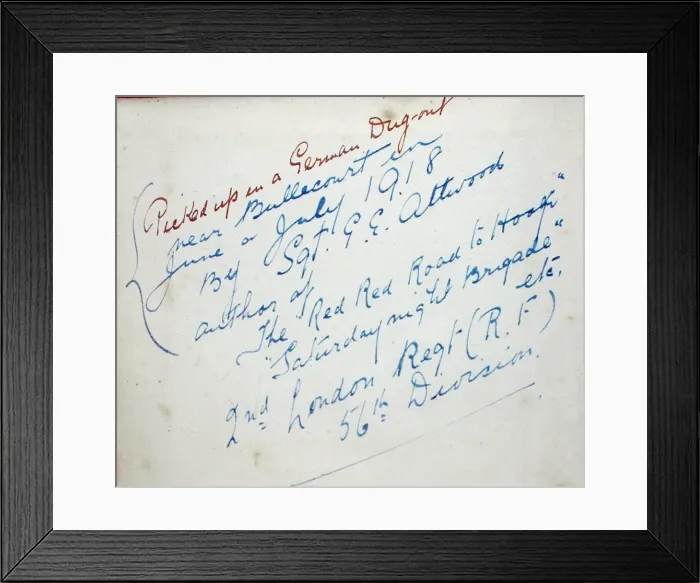 Picked up in a German Dug-out
near Bullecourt in
June or July 1918
By Sgt. G. E. Attwood
author of
"The Red Red Road to Hooge"
"Saturday night Brigade"
etc.
2nd London Regt (R. F)
56th Division.